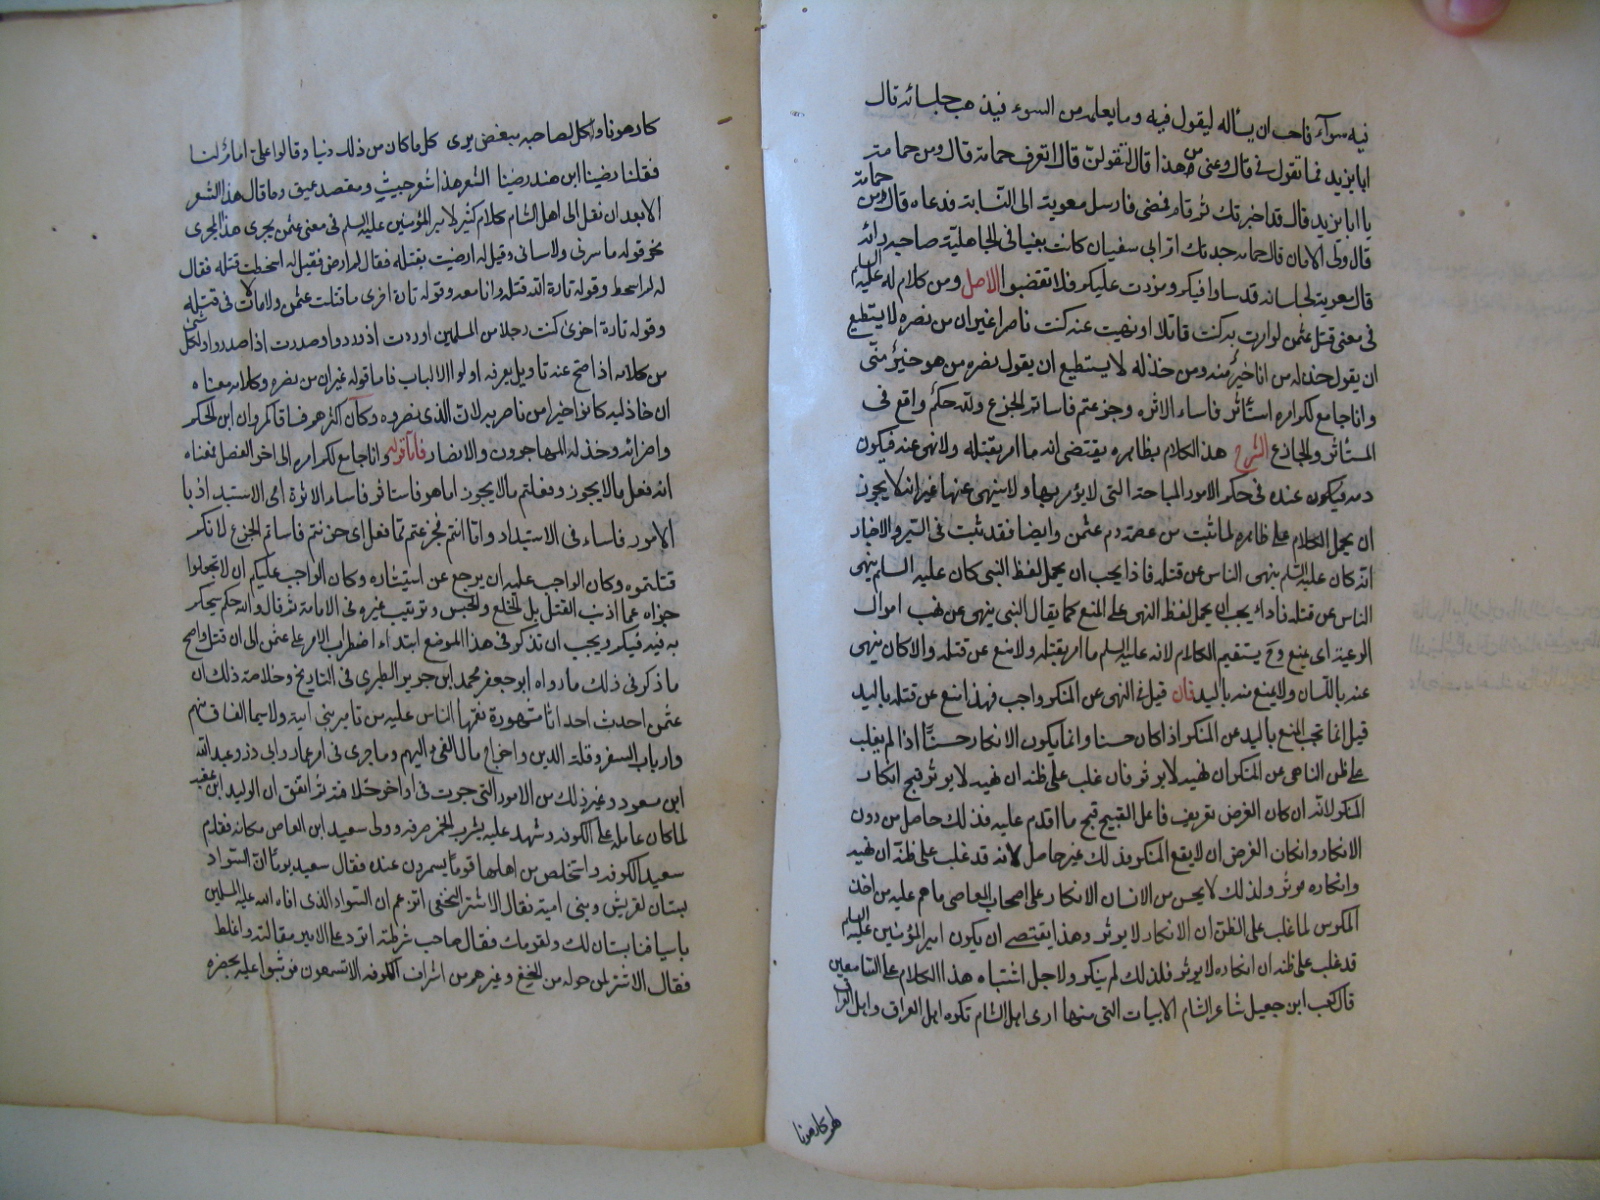 فيه سوآء فاحب ان يسأله ليقول فيه وما يعلمه من السوء فيذهب جلسائه قال
ابا يزيد فما تقول في قال دعني من هذا قال لتقولن قال اتعرف حمامة قال ومن حمامة
يا ابا يزيد قال قد اخبرتك ثم قام فمضى فارسل معوية الى النسابة فدعاه قال ومن حمامة
قال ولي الامان قال حمامه جدتك ام ابي سفيان كانت بغيا في الجاهلية صاحبة رائه
قال معوية لجلسائه قد ساوتكم وزدت عليكم فلا تغضبوا الاصل ومن كلام له عليه السلام
في معنى قتل عثمن لو امرت به لكنت قاتلا او نهيت عنه لكنت ناصرا غير ان من نصره لا يستطيع
ان يقول خذله من انا خير منه ومن خذله لا يستطيع ان يقول نصره من هو خير منى
وانا جامع لكم امره استأثر فاساء الاثره وجزعتم فاساتم الجزع ولله حكم واقع فى
المستأثر والجازع الشرح هذا الكلام بظاهره يقتضى انه ما امر بقتله ولا نهى عنه فيكون
دمه فيكون عنده فى حكم الامور المباحة التى لا يؤمر بها ولا ينهى عنها غير انه لا يجوز
ان يحمل الكلام على ظاهره لما ثبت من عصمة دم عثمن وايضا فقد ثبت فى السير والاخبار
انه كان عليه السلم ينهى الناس عن قتله فاذا يجب ان يحمل لفظ النهى كان عليه السلم ينهى
الناس عن قتله فاذا يجب ان يحمل لفظ النهى على المنع كما يقال النبى ينهى عن نهب اموال
الرعية اى يمنع وح يستقيم الكلام لانه عليه السلم ما امر بقتله ولا منع عن قتله والا كان ينهى
عنه باللسان ولا يمنع منه باليد فان قيل فى النهى عن المنكر واجب فهذا منع عن قتله باليد
قيل انما يجب المنع باليد عن المنكر اذا كان حسنا وانما يكون الانكار حسنا اذا لم يغلب
على ظن الناهى عن المنكر ان نهيه لا يوثر فان غلب على ظنه ان نهيه لا يوثر قبح انكار
المنكر لانه ان كان الغرض تعريف فاعل القبيح قبح ما اقدم عليه فذلك حاصل من دون
الانكار وان كان الغرض ان لا يقع المنكر فذلك غير حاصل لانه قد غلب على ظنه ان نهيه
وانكاره موثر ولذلك لا يحسن من الانسان الانكار على اصحاب المعاصى ما هم عليه من اخذ
المكوس لما غلب على الظن ان الانكار لا يوثر وهذا يقتضى ان يكون امير المؤمنين عليه السلم
قد غلب على ظنه ان انكاره لا يوثر فلذلك لم ينكر ولاجل اشتباه هذا الكلام على السامعين
قال كعب ابن جعيل شاعر الشام الابيات التى منها ارى اهل الشام تكره اهل العراق واهل العراق
لهم كارهونا
كارهونا وكل لصاحبه مبغض يرى كل ما كان من ذلك دينا وقالوا على امام لنا
فقلنا رضينا ابن هند رضينا الشعر هذا شعر خبيث ومقصد عميق وما قال هذا الشعر
الا بعد ان نقل الى اهل الشام كلام كثير لامير المؤمنين عليه السلم فى معنى عثمن يجرى هذا المجرى
نحو قوله ما سرنى ولا ساءنى وقيل له ارضيت بقتله فقال لم ارض فقيل له اسخطت قتله فقال
لم اسخط وقوله تارة الله قتله وانا معه وقوله تارة اخرى ما قتلت عثمن ولا مالأت فى قتله
وقوله تارة اخرى كنت رجلا من المسلمين اوردت اذ اوردوا وصدرت اذا صدروا ولكل شئ
من كلامه اذا صح عنه تاويل يعرفه اولوا الالباب فاما قوله غير ان من نصره وكلامه معناه
ان خاذليه كانوا خيرا من ناصريه لان الذى نصروه وكان اكثرهم فساقا كمروان ابن الحكم
واضرابه وخذله المهاجرون والانصار فاما قوله وانا جامع لكم امره الى اخر الفصل فمعناه
انه فعل ما لا يجوز وفعلتم ما لا يجوز اما هو فاستأثر فاساء الاثرة اى الاستبداد با
الامور فاساء فى الاستبداد واما انتم فجزعتم مما فعل اى حزنتم فاساتم الجزع لانكم
قتلتموه وكان الواجب عليه ان يرجع عن استيثاره وكان الواجب عليكم ان لا تجعلوا
جزاه عما اذنب القتل بل الخلع والحبس وترتيب غيره فى الامامة ثم قال ولله حكم سيحكم
به فيه فيكم ويجب ان نذكر فى هذا الموضع ابتداء اضطراب الامر على عثمن الى ان قتل واصح
ما ذكر فى ذلك ما رواه ابو جعفر محمد ابن جرير الطبرى فى التاريخ وخلاصة ذلك ان
عثمن احدث احداثا مشهورة نقمها الناس عليه من تامير بنى امية ولا سيما الفساق منهم
وارباب السفه وقلة الدين واخراج مال الفىء اليهم وما جرى فى امر عمار وابى ذر وعبد الله
ابن مسعود وغير ذلك من الامور التى جرت فى اواخر خلافته ثم اتفق ان الوليد ابن عقبه
لما كان عامله على الكوفه وشهد عليه بشرب الخمر صرفه وولى سعيد ابن العاص مكانه فقدم
سعيد الكوفه واستخلص من اهلها قوما يسمرون عنده فقال سعيد يوما ان السواد
بستان لقريش وبنى امية فقال الاشتر النخعى اتزعم ان السواد الذى افاءه الله على المسلمين
باسيافنا بستان لك ولقومك فقال صاحب شرطته اترد على الامير مقالته واغلظ
فقال الاشتر لمن حوله من النخع وغيرهم من اشراف الكوفه الا تسمعون فوثبوا عليه بحضره